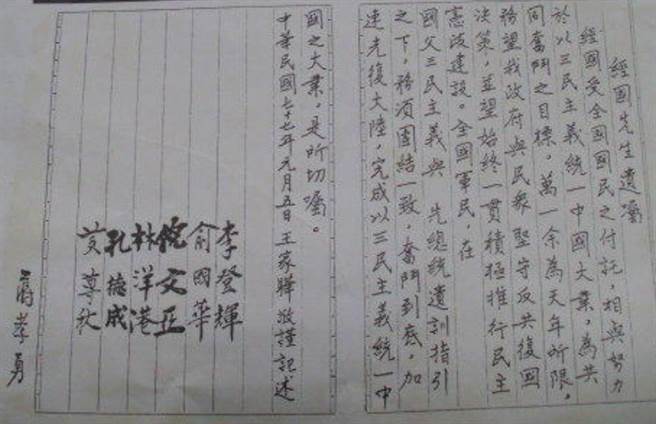 經國先生遺囑
經國受全國國民之付託，相與努力
於以三民主義統一中國大業，為共
同奮鬥之目標，萬一余為天年所限，
務望我政府與民眾堅守反共復國
決策，並望始終一貫積極推行民主
憲政建設。全國軍民，在
國父三民主義與　先總統遺訓指引
之下，務須團結一致，奮鬥到底，加
速光復大陸，完成以三民主義統一中
國之大業，是所切囑。
中華民國七十七年元月五日王家驊敬謹記述
李登輝
俞國華
倪文亞
林洋港
孔德成
黃尊秋
蔣孝勇